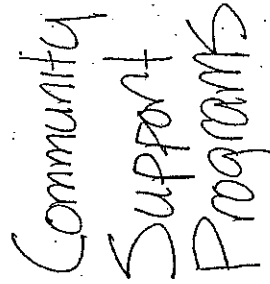 Community
Support
Programs